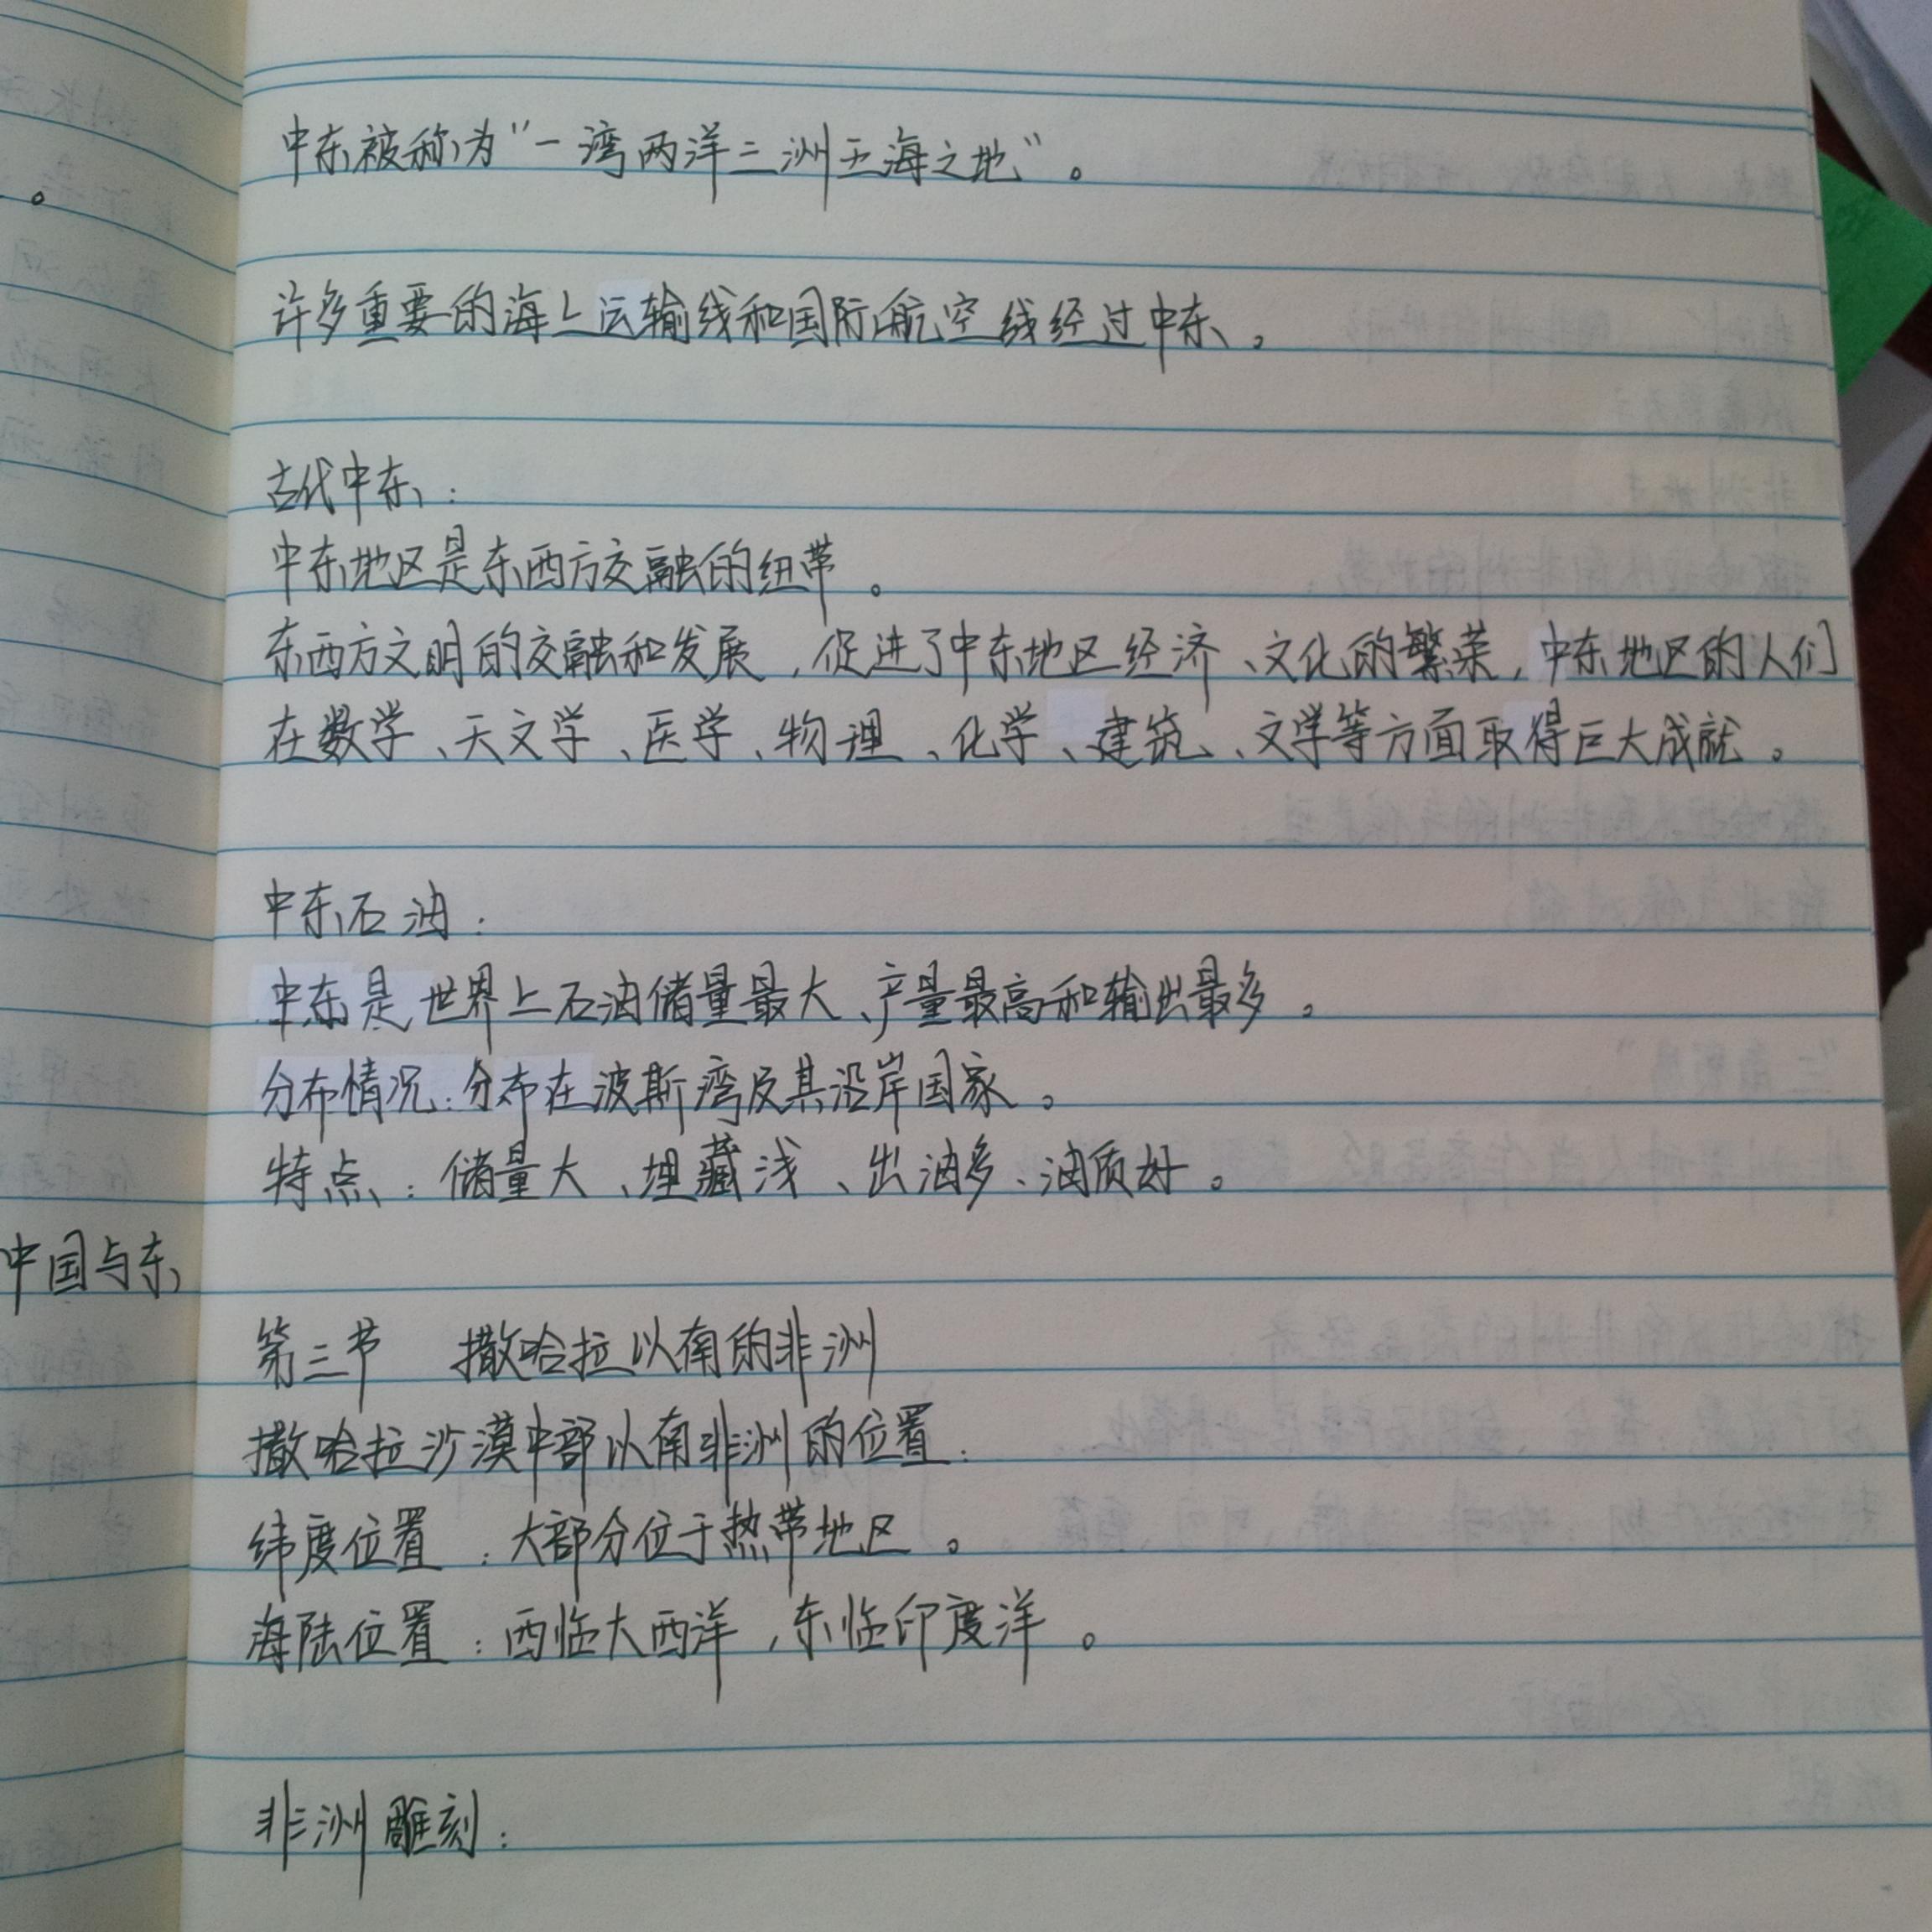 中东被称为“一湾两洋三洲五海之地”。
许多重要的海上运输线和国际航空线经过中东。
古代中东：
中东地区是东西方交融的纽带。
东西方文明的交融和发展，促进了中东地区经济、文化的繁荣，中东地区的人们
在数学、天文学、医学、物理、化学、建筑、文学等方面取得巨大成就。
中东石油：
中东是世界上石油储量最大、产量最高和输出最多。
分布情况：分布在波斯湾及其沿岸国家。
特点：储量大、埋藏浅、出油多、油质好。
中国与东
第三节 撒哈拉以南的非洲
撒哈拉沙漠中部以南非洲的位置：
纬度位置：大部分位于热带地区。
海陆位置：西临大西洋，东临印度洋。
非洲雕刻：